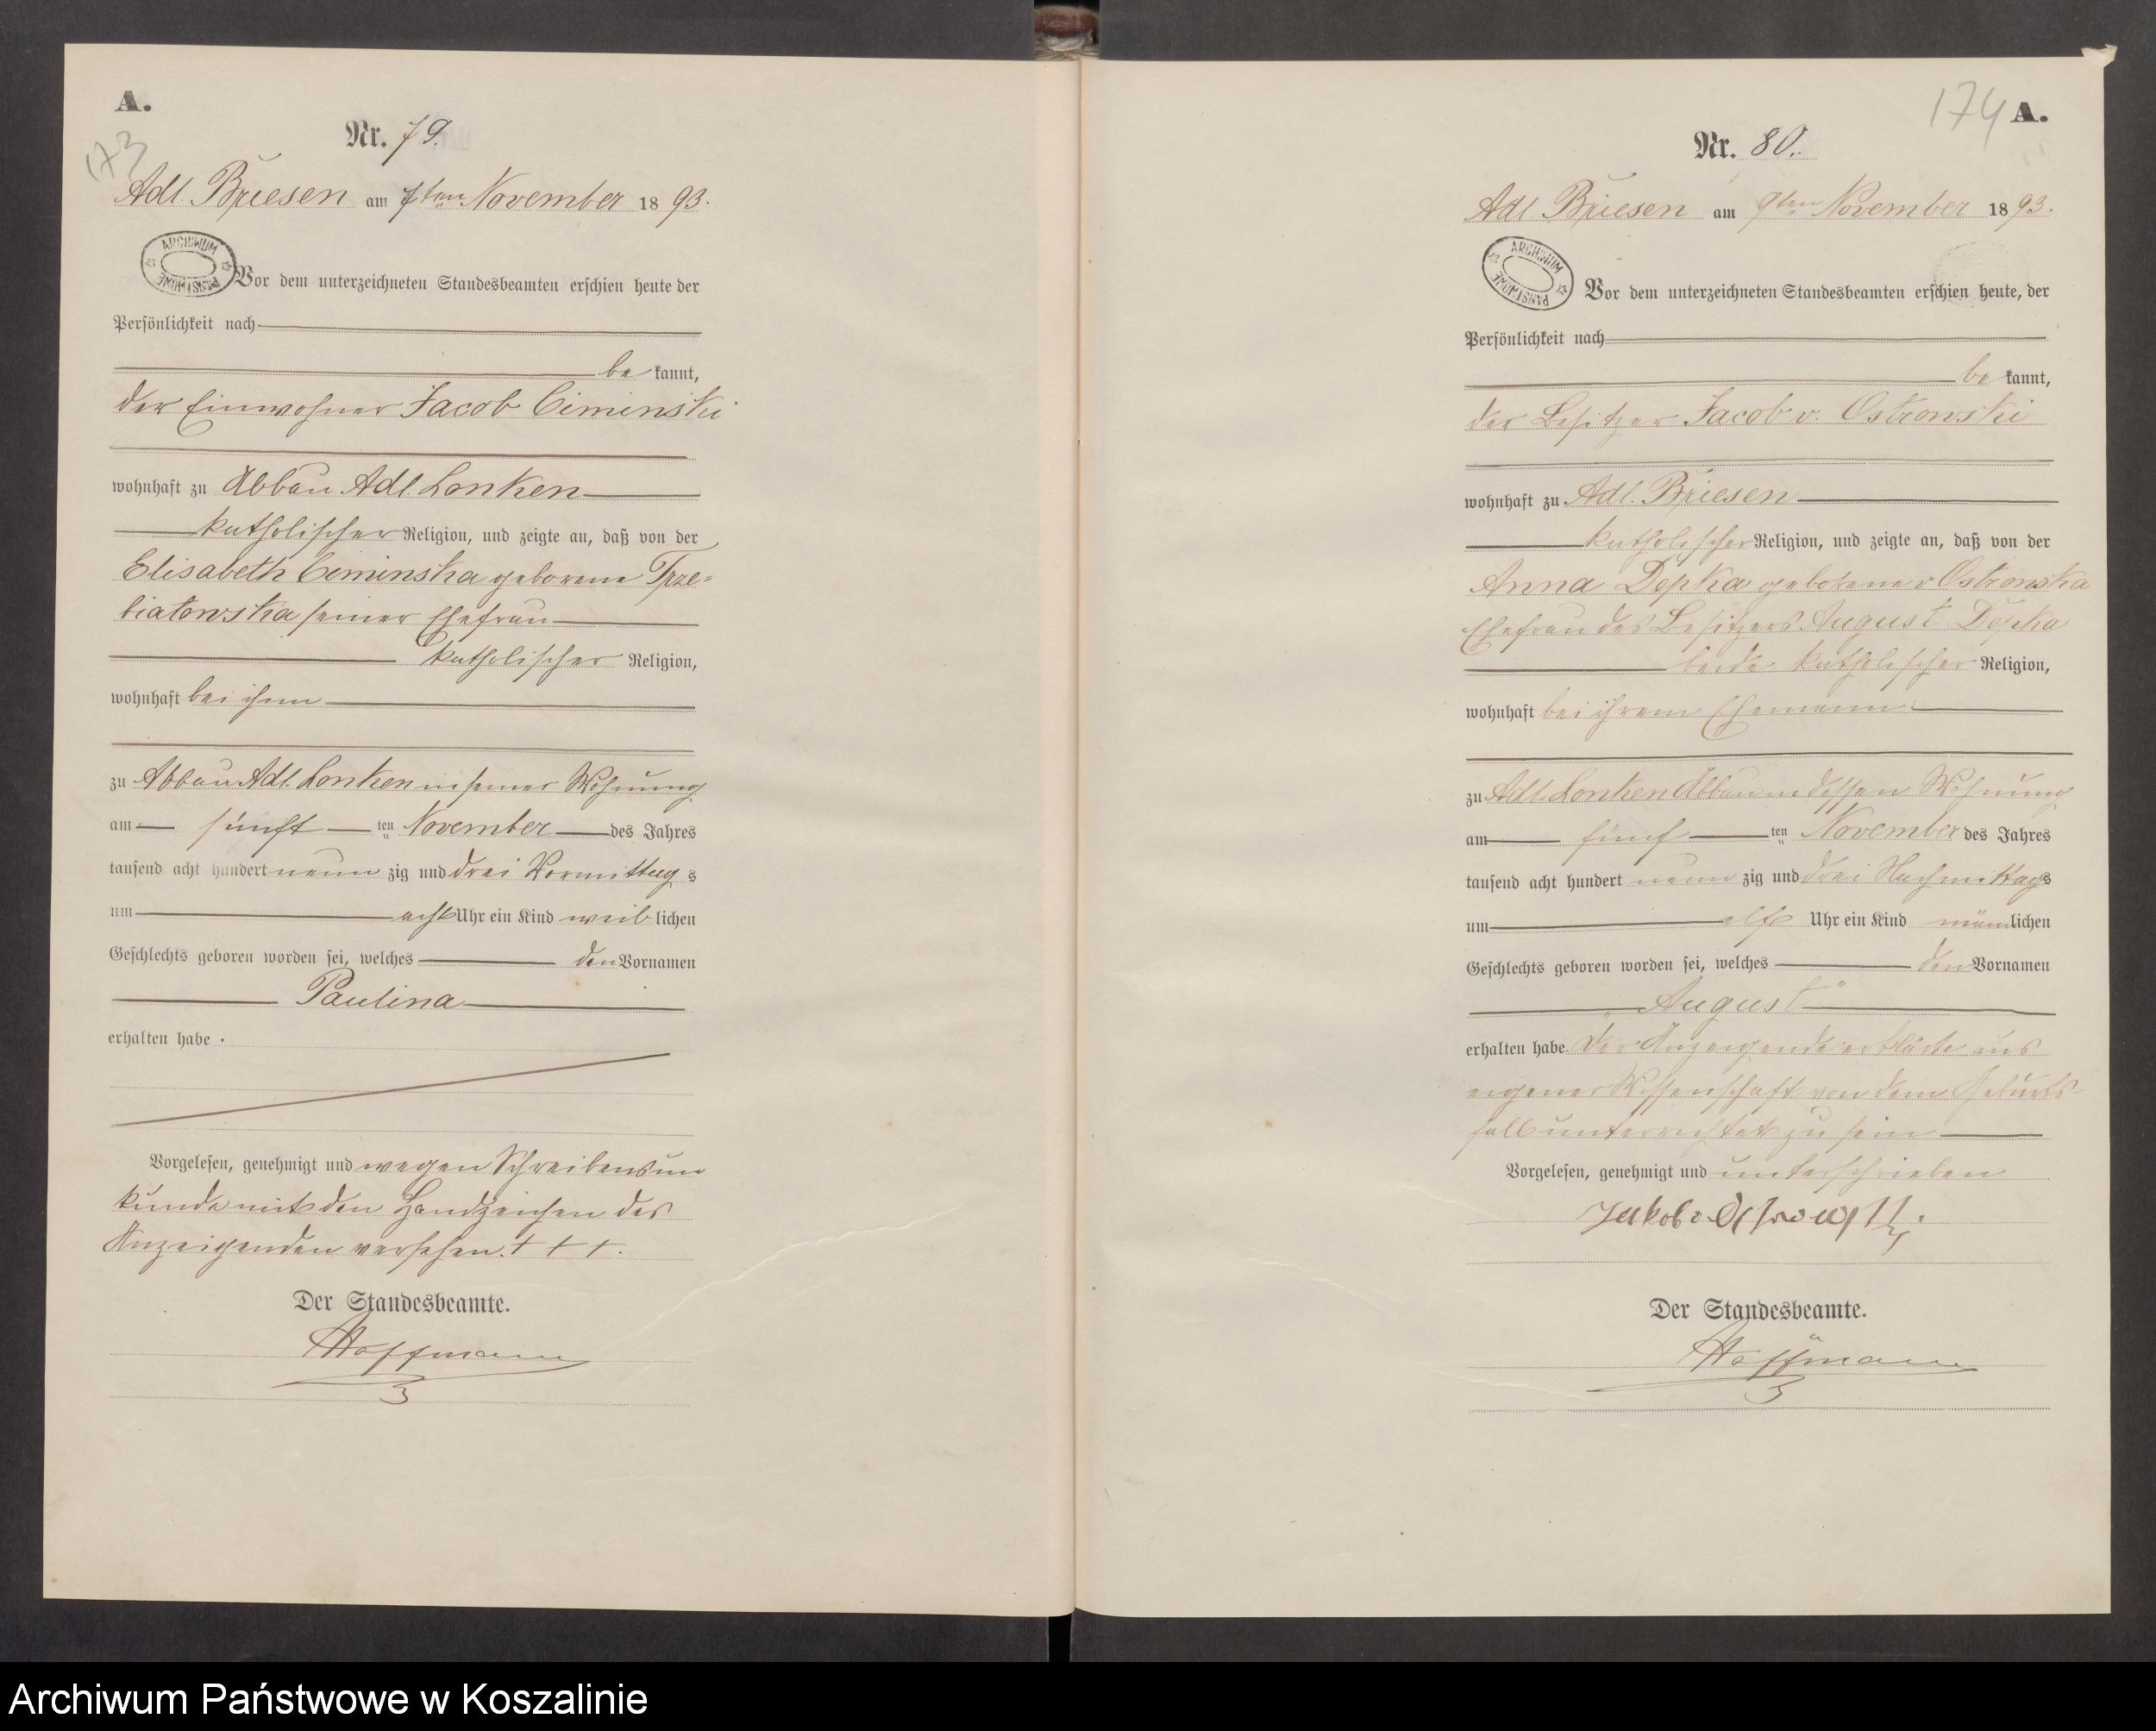 A.
173
Nr. 79.
Adl. Briesen am 7ten November 1893.
ARCHIWUM PAŃSTWOWE
Vor dem unterzeichneten Standesbeamten erschien heute der
Persönlichkeit nach
be kannt,
der Einwohner Jacob Ciminski
wohnhaft zu Abbau Adl. Lonken
katholischer Religion, und zeigte an, daß von der
Elisabeth Ciminska geborene Trze=
biatowska seiner Ehefrau
katholischer Religion,
wohnhaft bei ihm
zu Abbau Adl. Lonken in seiner Wohnung
am fünft ten November des Jahres
tausend acht hundert neun zig und drei Vormittag s
um acht Uhr ein Kind weib lichen
Geschlechts geboren worden sei, welches den Vornamen
Paulina
erhalten habe.
Vorgelesen, genehmigt und wegen Schreibensun
kunde mit den Handzeichen des
Anzeigenden versehen. + + +.
Der Standesbeamte.
Hoffmann
174 A.
Nr. 80.
Adl Briesen am 9ten November 1893.
ARCHIWUM PAŃSTWOWE
Vor dem unterzeichneten Standesbeamten erschien heute, der
Persönlichkeit nach
be kannt,
der Besitzer Jacob v. Ostrowski
wohnhaft zu Adl. Briesen
katholischer Religion, und zeigte an, daß von der
Anna Depka geborene v Ostrowska
Ehefrau des Besitzers August Depka
beide katholischer Religion,
wohnhaft bei ihrem Ehemann
zu Adl. Lonken Abbau in dessen Wohnung
am fünf ten November des Jahres
tausend acht hundert neun zig und drei Nachmittags
um elf Uhr ein Kind männlichen
Geschlechts geboren worden sei, welches den Vornamen
„August"
erhalten habe. Der Anzeigende erklärte aus
eigener Wissenschaft von dem Geburts-
fall unterrichtet zu sein
Vorgelesen, genehmigt und unterschrieben
Jakob v. Ostrowski.
Der Standesbeamte.
Hoffmann
Archiwum Państwowe w Koszalinie